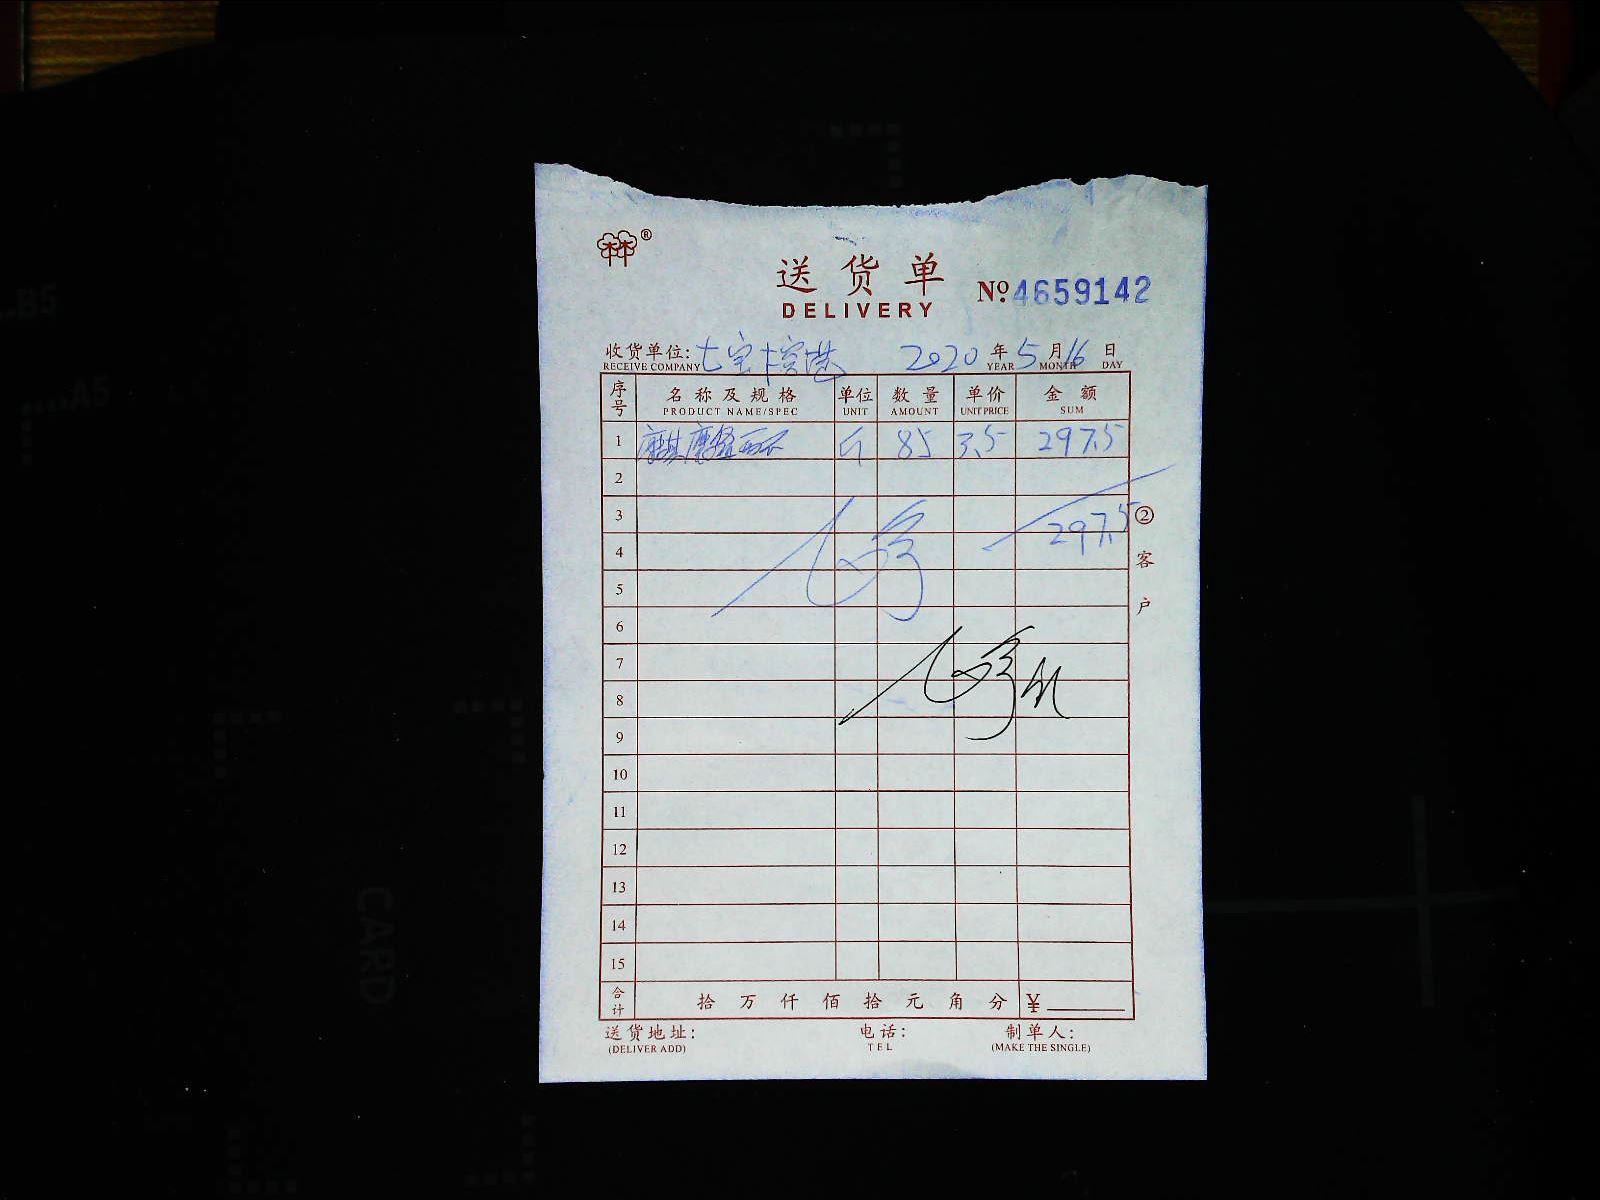 ®
送货单
DELIVERY
№ 4659142
收货单位: 七宝 2020 年 5 月 16 日
RECEIVE COMPANY YEAR MONTH DAY
序号 名称及规格 单位 数量 单价 金额
PRODUCT NAME/SPEC UNIT AMOUNT UNIT PRICE SUM
1 斤 85 3.5 297.5
2
3 297.5
4
5
6
7
8
9
10
11
12
13
14
15
② 客户
合计 拾 万 仟 佰 拾 元 角 分 ¥
送货地址: 电话: 制单人:
(DELIVER ADD) TEL (MAKE THE SINGLE)
B5
A5
CARD